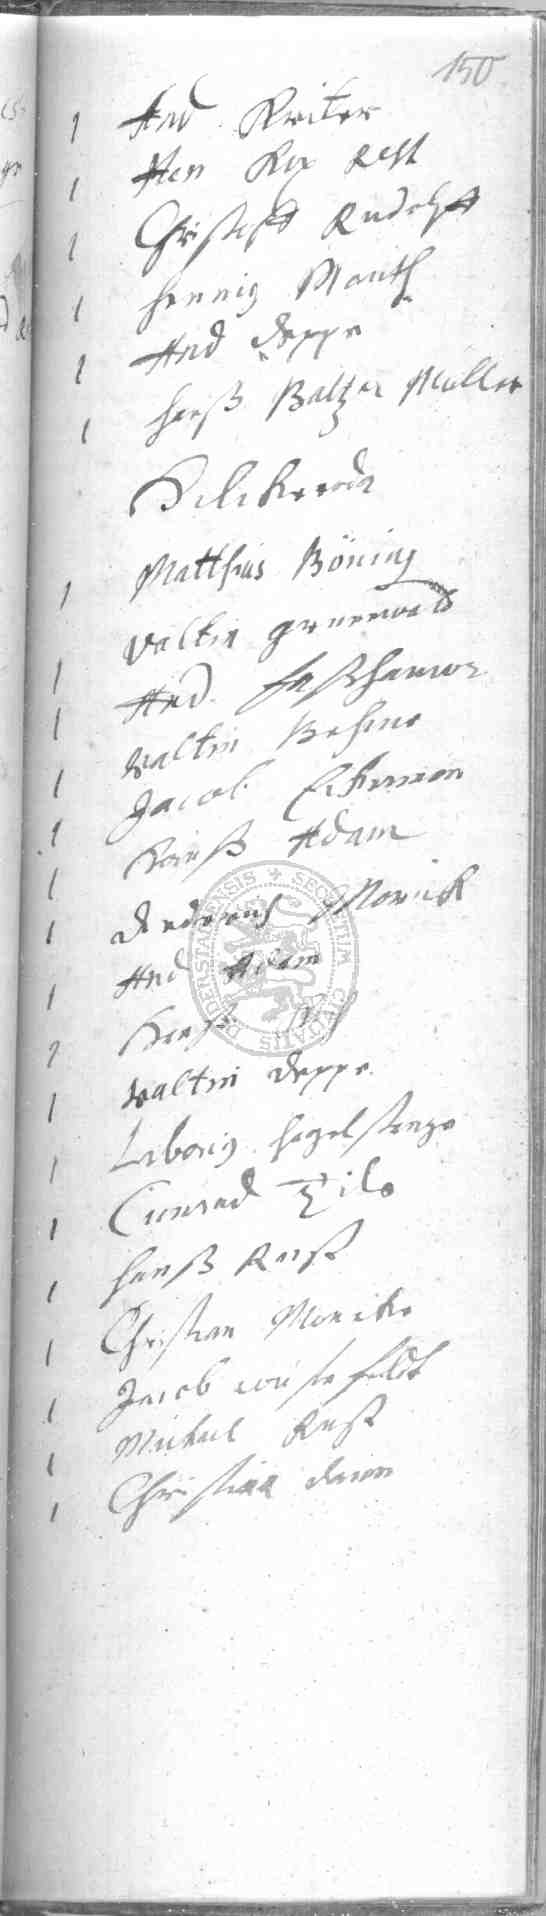 150
1 And Kreiter
1 Hen Rust
1 Christoff Rudolff
1 Hennig Monith
1 And Deppe
1 Hanß Baltzer Müller
Hilckerode
1 Matthias Böning
1 Valtin Grunewald
1 And. Faßhauwer
1 Valtin Behme
1 Jacob Eckerman
1 Hanß Adam
1 Diderich Monick
1 And Adam
1 Hanß
1 Valtin Deppe
1 Liborig Hagelstange
1 Cunrad Zilo
1 Hanß Rust
1 Christian Monicke
1 Jacob Wustefeldt
1 Michael Rust
1 Christian
SECRETUM CIVITATIS DUDERSTADENSIS